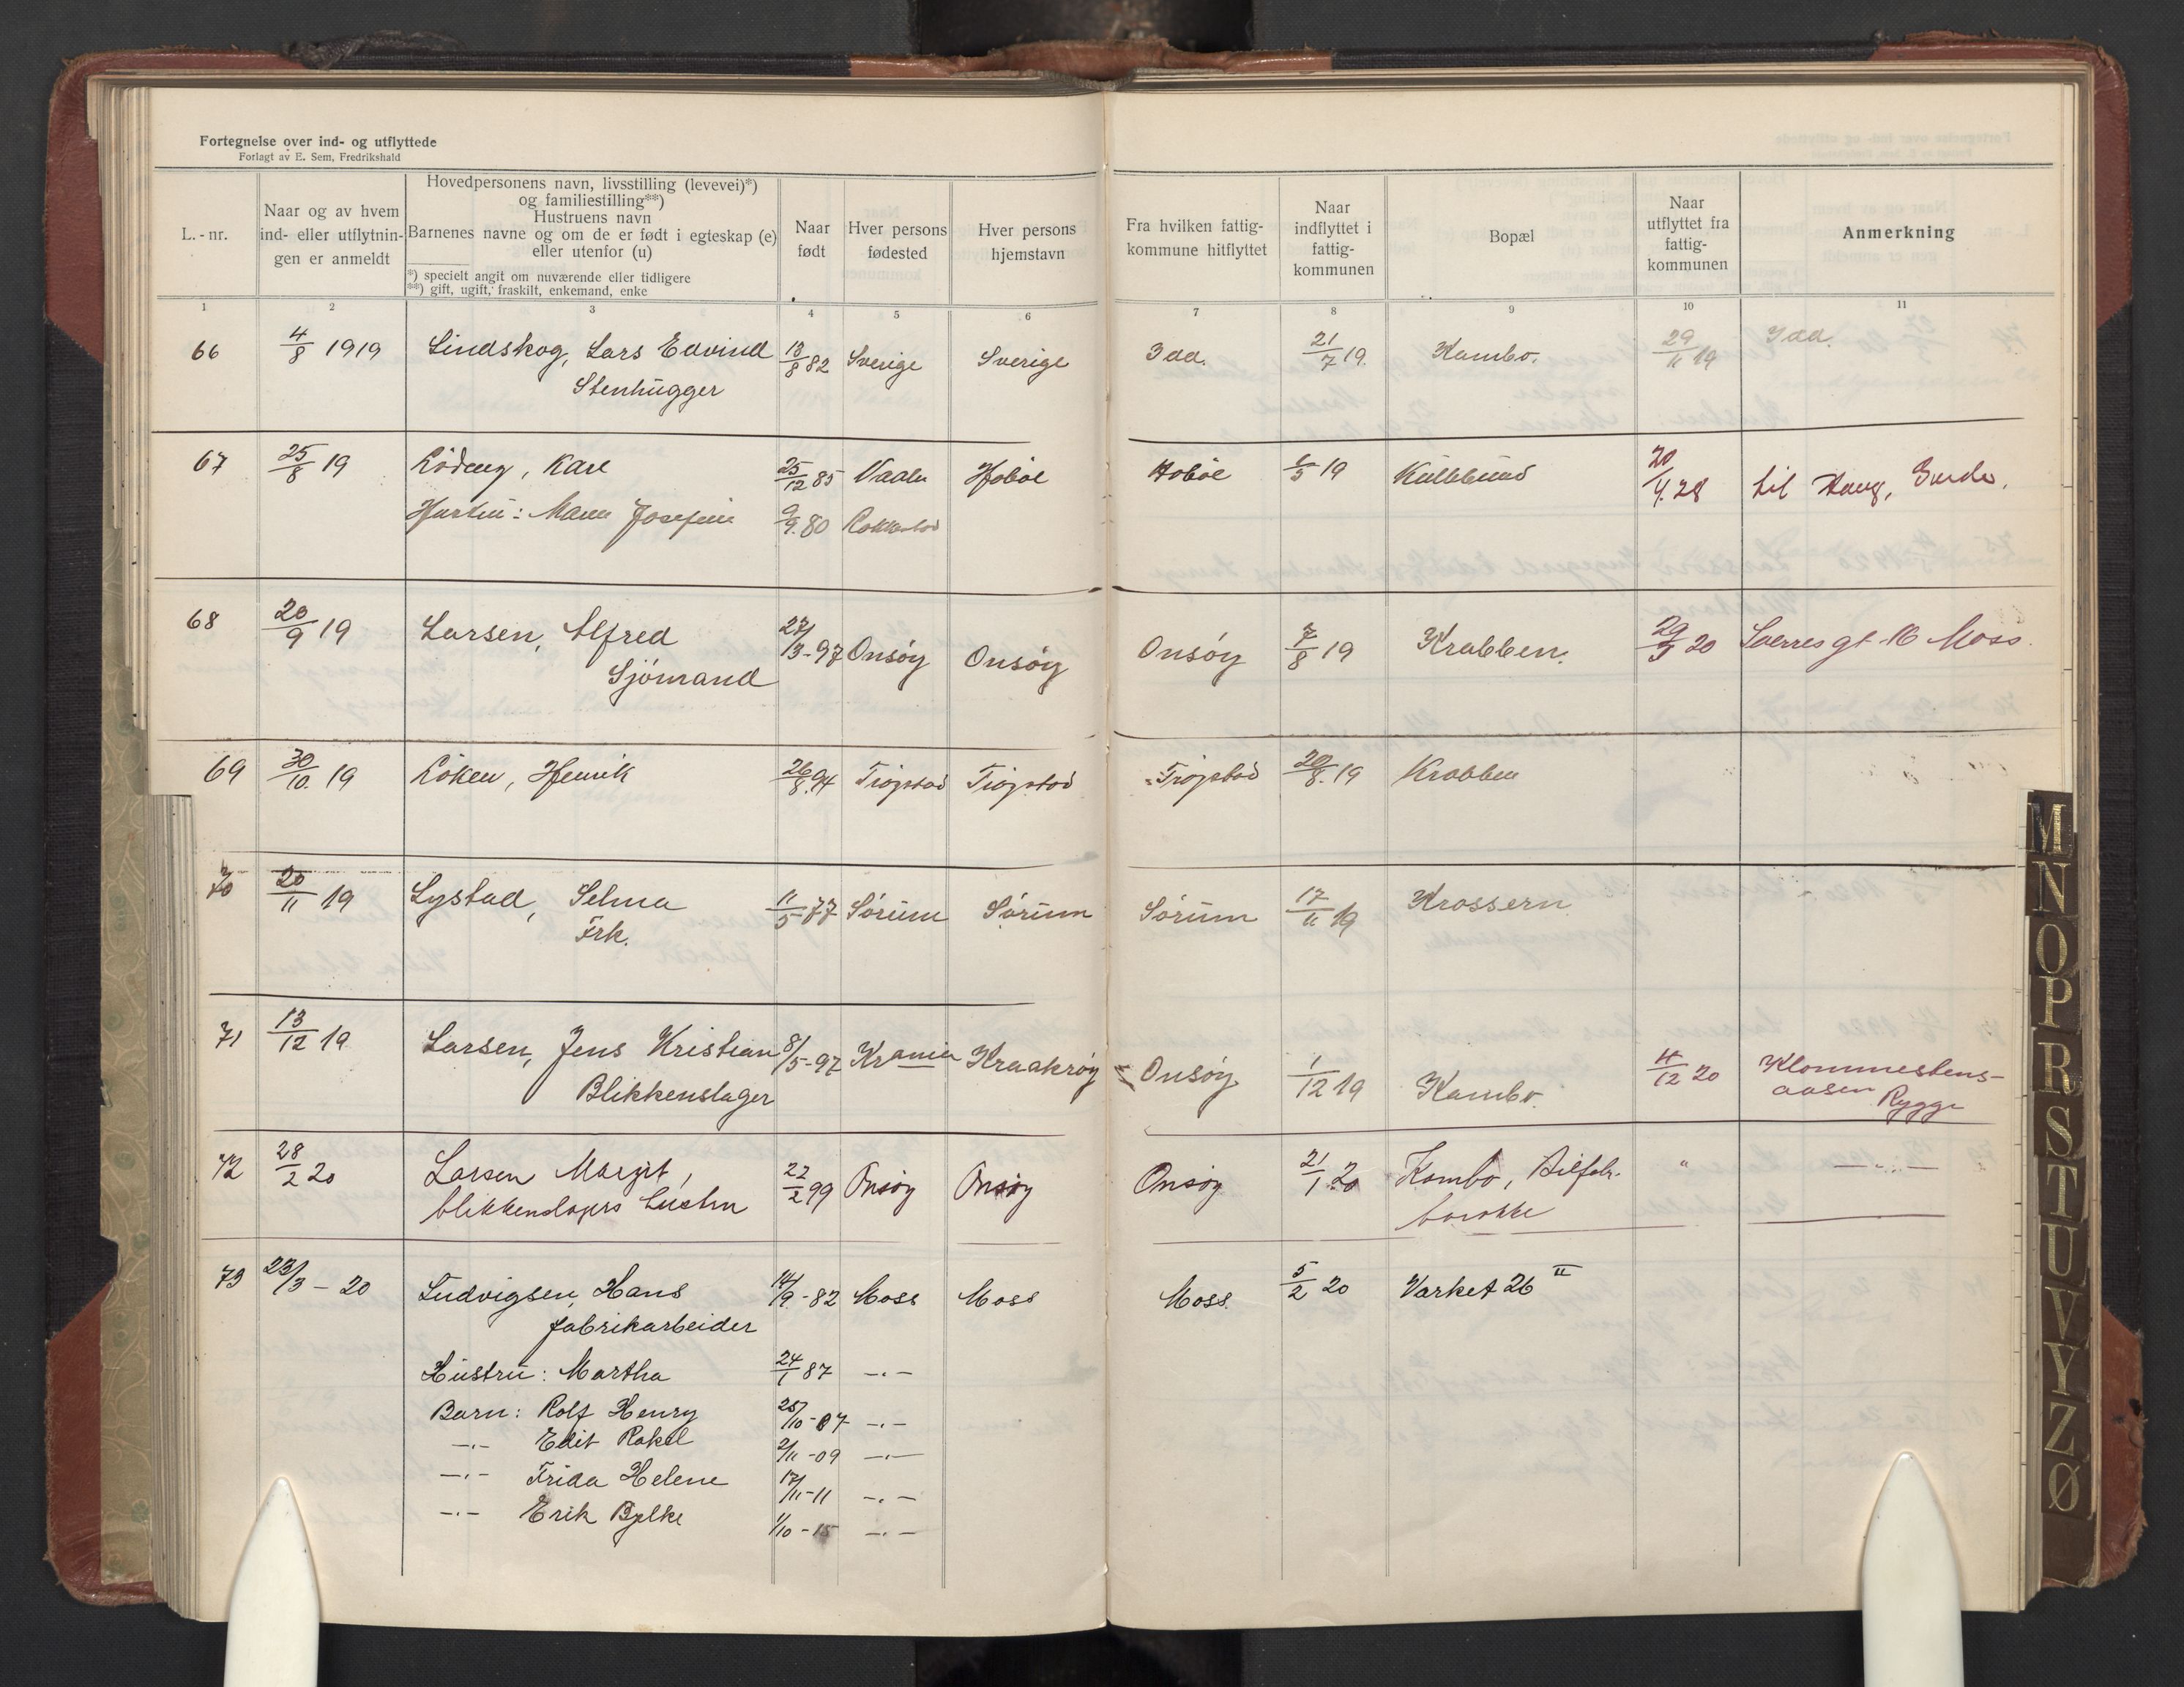 Fortegnelse over ind- og utflyttede
Forlagt av E. Sem, Fredrikshald
L.-nr.
Naar og av hvem
ind- eller utflytnin-
gen er anmeldt
Hovedpersonens navn, livsstilling (levevei)*)
og familiestilling**)
Hustruens navn
Barnenes navne og om de er født i egteskap (e)
eller utenfor (u)
*) specielt angit om nuværende eller tidligere
**) gift, ugift, fraskilt, enkemand, enke
Naar
født
Hver persons
fødested
Hver persons
hjemstavn
Fra hvilken fattig-
kommune hitflyttet
Naar
indflyttet i
fattig-
kommunen
Bopæl
Naar
utflyttet fra
fattig-
kommunen
Anmerkning
1 2 3 4 5 6 7 8 9 10 11
66 4/8 1919 Lindskog, Lars Edvind 13/8 82 Sverige Sverige Idd. 21/7 19. Kambo. 29/11 19 Idd.
Stenhugger
67 25/8 19 Lödeng, Karl 25/12 85 Vaaler Hobøl Hobøl 19 20/4.28 til Haug,
Josefine 9/9.80 Rakkestad
68 20/9 19 Larsen, Alfred 27/3-97 Onsöy Onsöy Onsöy 7/8 19 Krabben. 29/3 20 Sverres gt. 16 Moss.
Sjömand
69 30/10. 19 Löken, Henrik 26/8.94 Trögstad Trögstad Trögstad 20/8. 19 Krabben
70 20/11 19 Lystad, Selma 11/5 77 Sörum Sörum Sörum 17/11 19 Krossern
Frk.
71 13/12 19 Larsen, Jens Kristian 8/5-97 Krania Kraakröy Onsöy 1/12 19 Kambo. 4/12 20 Klommestens-
aasen Rygge
Blikkenslager
72 28/2 20 Larsen Margit, 22/2 99 Onsöy Onsöy Onsöy 21/1 20 Kambo, Bilfabr. " —"—
blikkenslagers hustru barakke
73 23/3 - 20 Ludvigsen, Hans 14/9-82 Moss Moss Moss. 5/2 20 Varket 26 II
fabrikarbeider
Hustru: Martha 24/1 87 -"-
Barn: Rolf Henry 25/10-07 -"-
-"- Edit Rakel 2/11-09 -"-
-"- Frida Helene 17/11-11 -"-
-"- Erik Bjelke 1/10-15 -"-
M
N
O
P
R
S
T
U
V
Y
Z
Ø